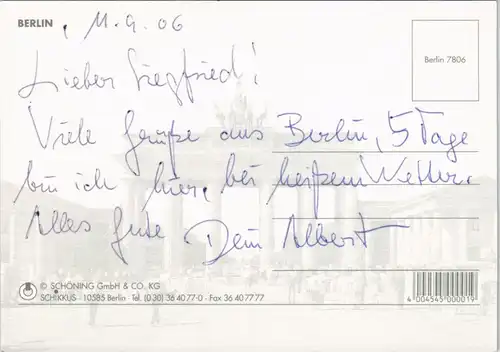 BERLIN, 11.9.06
Berlin 7806
Lieber Siegfried!
Viele Grüße aus Berlin, 5 Tage
bin ich hier, bei heißem Wetter.
Alles Gute Dein Albert
© SCHÖNING GmbH & CO. KG
SCHIKKUS · 10585 Berlin · Tel. (0 30) 36 40 77-0 · Fax 36 40 77 77
4 004545 000019